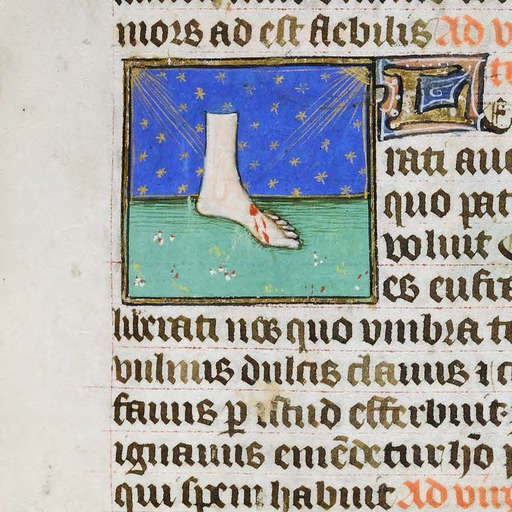 mors ad est flebilis Ad v
rati aue
quo pat
voluit
es eufra
liberati nos quo vmbra te
vulnus dulcis clauus
fauus p istud efferbuit
ignauus emēdetur hō p
qui spem habuit Ad virg